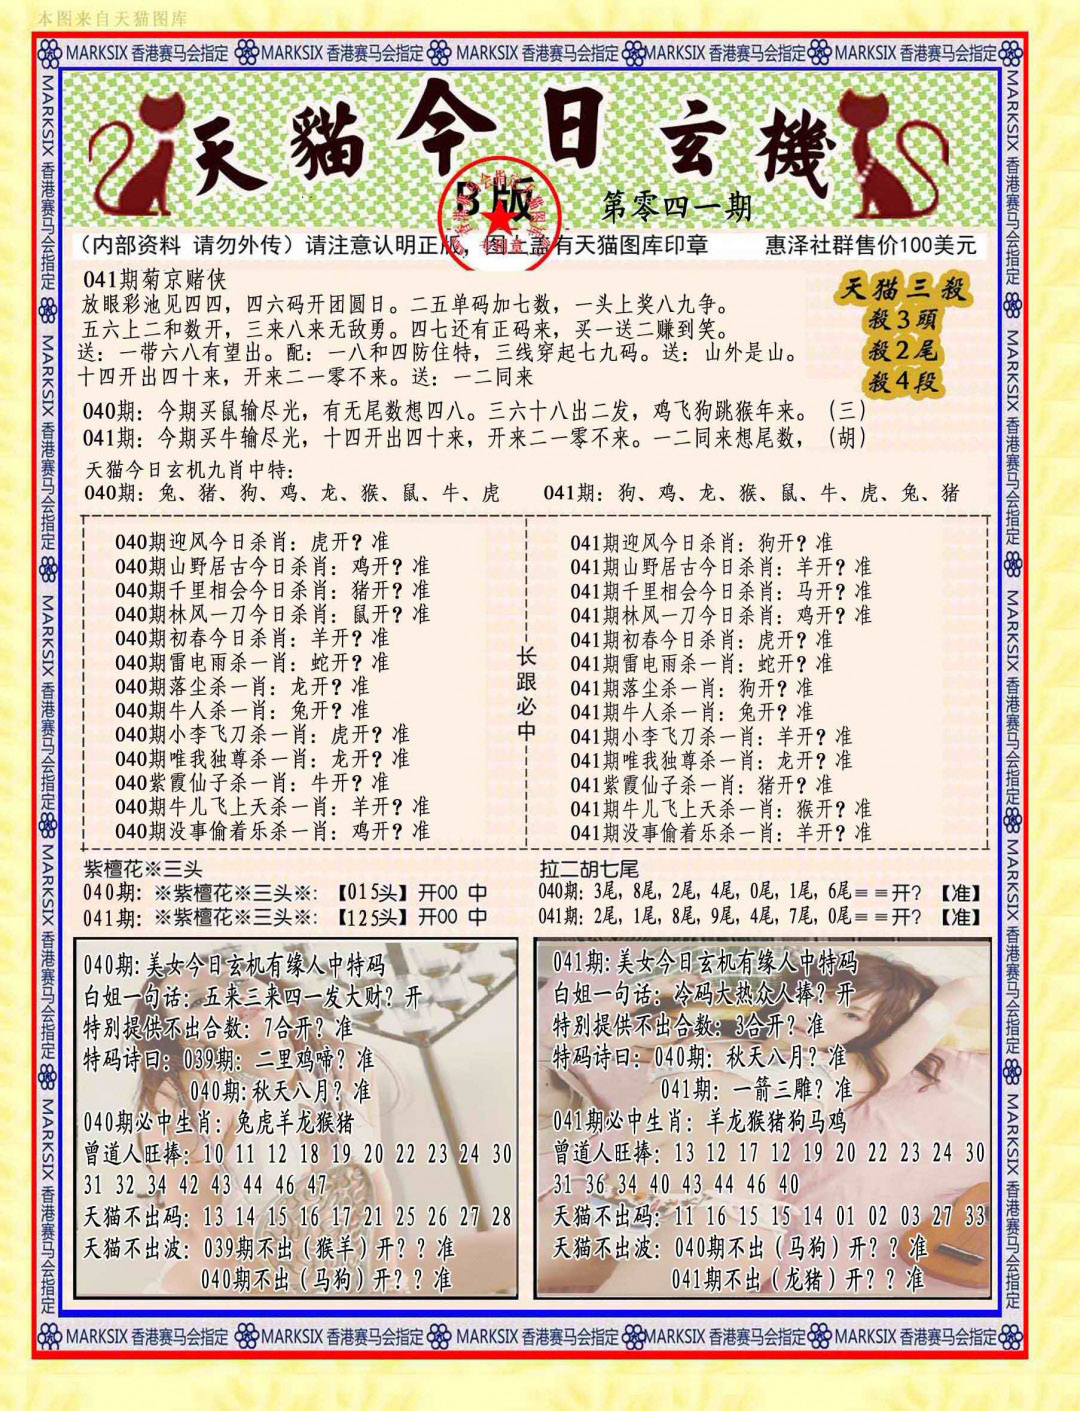 本图来自天猫图库
MARKSIX 香港赛马会指定 MARKSIX 香港赛马会指定 MARKSIX 香港赛马会指定 MARKSIX 香港赛马会指定 MARKSIX 香港赛马会指定
天貓今日玄機
B版
第零四一期
（内部资料 请勿外传）请注意认明正版，图上盖有天猫图库印章 惠泽社群售价100美元
041期菊京赌侠
放眼彩池见四四，四六码开团圆日。二五单码加七数，一头上奖八九争。
五六上二和数开，三来八来无敌勇。四七还有正码来，买一送二赚到笑。
送：一带六八有望出。配：一八和四防住特，三线穿起七九码。送：山外是山。
十四开出四十来，开来二一零不来。送：一二同来
天猫三殺
殺3頭
殺2尾
殺4段
040期：今期买鼠输尽光，有无尾数想四八。三六十八出二发，鸡飞狗跳猴年来。（三）
041期：今期买牛输尽光，十四开出四十来，开来二一零不来。一二同来想尾数，（胡）
天猫今日玄机九肖中特：
040期：兔、猪、狗、鸡、龙、猴、鼠、牛、虎 041期：狗、鸡、龙、猴、鼠、牛、虎、兔、猪
040期迎风今日杀肖：虎开？准
040期山野居古今日杀肖：鸡开？准
040期千里相会今日杀肖：猪开？准
040期林风一刀今日杀肖：鼠开？准
040期初春今日杀肖：羊开？准
040期雷电雨杀一肖：蛇开？准
040期落尘杀一肖：龙开？准
040期牛人杀一肖：兔开？准
040期小李飞刀杀一肖：虎开？准
040期唯我独尊杀一肖：龙开？准
040紫霞仙子杀一肖：牛开？准
040期牛儿飞上天杀一肖：羊开？准
040期没事偷着乐杀一肖：鸡开？准
长跟必中
041期迎风今日杀肖：狗开？准
041期山野居古今日杀肖：羊开？准
041期千里相会今日杀肖：马开？准
041期林风一刀今日杀肖：鸡开？准
041期初春今日杀肖：虎开？准
041期雷电雨杀一肖：蛇开？准
041期落尘杀一肖：狗开？准
041期牛人杀一肖：兔开？准
041期小李飞刀杀一肖：羊开？准
041期唯我独尊杀一肖：龙开？准
041紫霞仙子杀一肖：猪开？准
041期牛儿飞上天杀一肖：猴开？准
041期没事偷着乐杀一肖：羊开？准
紫檀花※三头
040期：※紫檀花※三头※：【015头】开00 中
041期：※紫檀花※三头※：【125头】开00 中
拉二胡七尾
040期：3尾，8尾，2尾，4尾，0尾，1尾，6尾＝＝开？【准】
041期：2尾，1尾，8尾，9尾，4尾，7尾，0尾＝＝开？【准】
040期:美女今日玄机有缘人中特码
白姐一句话：五来三来四一发大财？开
特别提供不出合数：7合开？准
特码诗曰：039期：二里鸡啼？准
040期:秋天八月？准
040期必中生肖：兔虎羊龙猴猪
曾道人旺捧：10 11 12 18 19 20 22 23 24 30
31 32 34 42 43 44 46 47
天猫不出码：13 14 15 16 17 21 25 26 27 28
天猫不出波：039期不出（猴羊）开？？准
040期不出（马狗）开？？准
041期:美女今日玄机有缘人中特码
白姐一句话：冷码大热众人捧？开
特别提供不出合数：3合开？准
特码诗曰：040期：秋天八月？准
041期：一箭三雕？准
041期必中生肖：羊龙猴猪狗马鸡
曾道人旺捧：13 12 17 12 19 20 22 23 24 30
31 36 34 40 43 44 46 40
天猫不出码：11 16 15 15 14 01 02 03 27 33
天猫不出波：040期不出（马狗）开？？准
041期不出（龙猪）开？？准
MARKSIX 香港赛马会指定 MARKSIX 香港赛马会指定 MARKSIX 香港赛马会指定 MARKSIX 香港赛马会指定 MARKSIX 香港赛马会指定